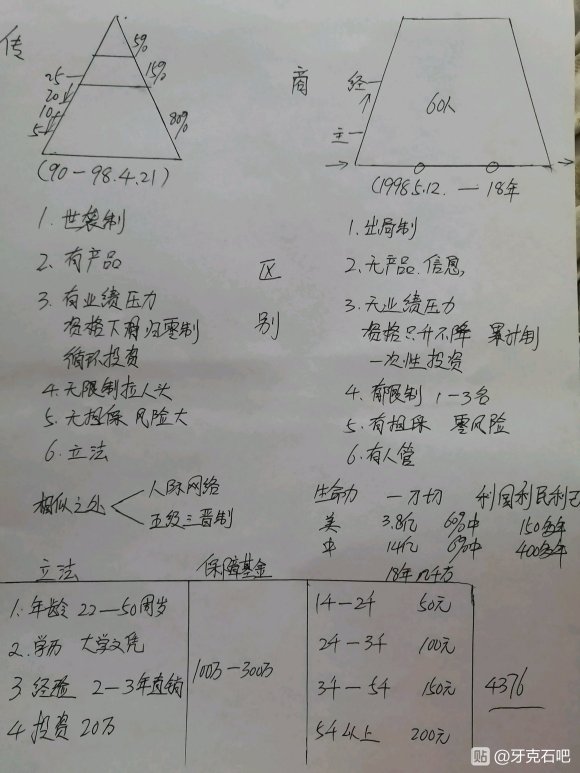 传
5%
15%
80%
25
20
10
5
(90-98.4.21)
商
经
主
60人
(1998.5.12. — 18年
区别
1. 世袭制
2. 有产品
3. 有业绩压力
资格下滑归零制
循环投资
4. 无限制拉人头
5. 无担保 风险大
6. 立法
1. 出局制
2. 无产品.信息,
3. 无业绩压力
资格只升不降 累计制
一次性投资
4. 有限制 1-3名
5. 有担保 零风险
6. 有人管
相似之处
人际网络
五级三晋制
生命力 一刀切 利国利民利己
美 3.8亿 60%中 150多年
中 14亿 6%中 400多年
18年 几千万
立法
1. 年龄 22—50周岁
2. 学历 大学文凭
3 经验 2-3年直销
4. 投资 20万
保障基金
100万-300万
1千-2千 50元
2千-3千 100元
3千-5千 150元
5千以上 200元
4376
贴 @牙克石吧